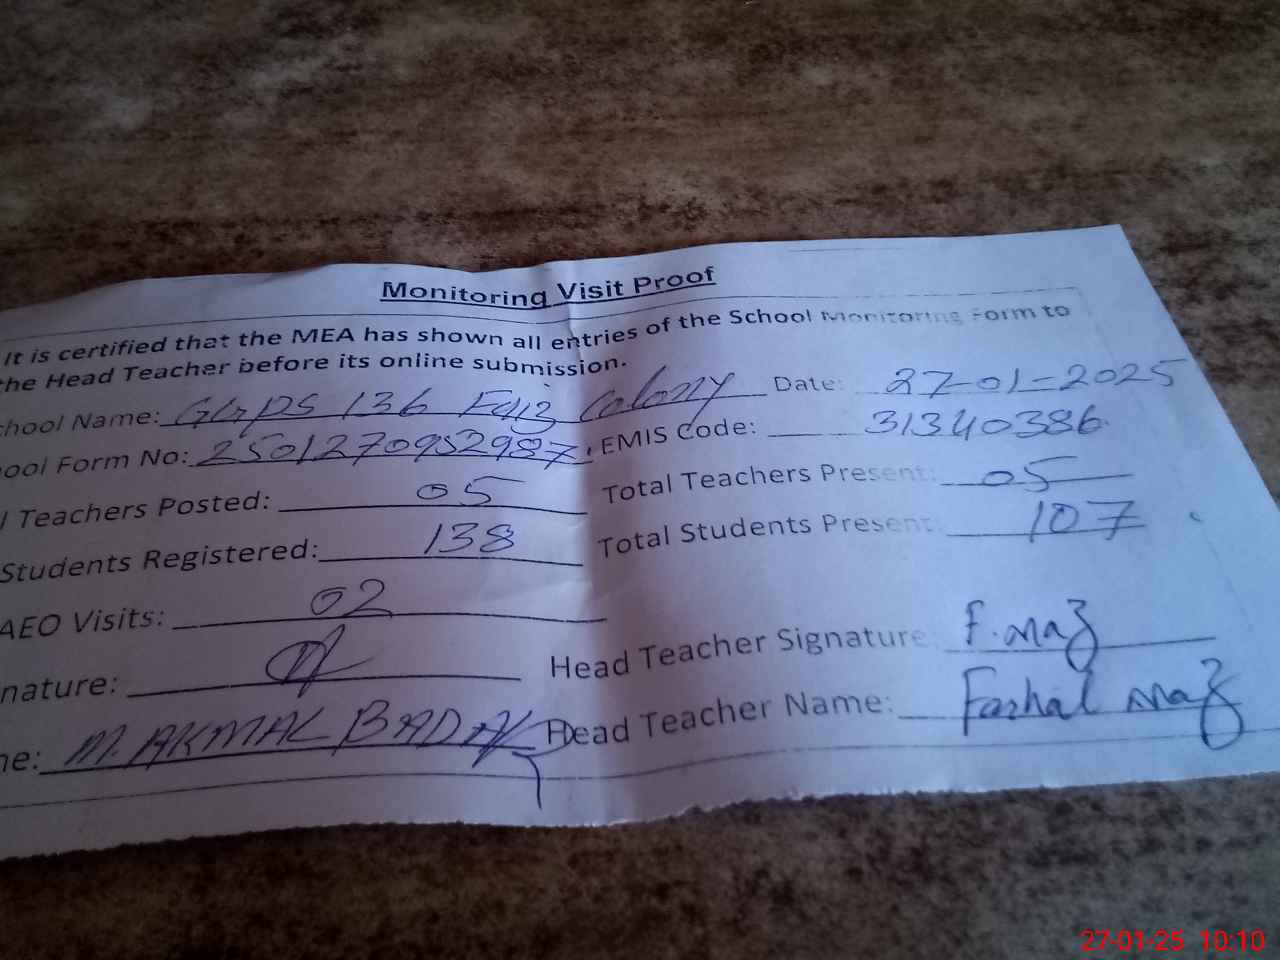 Monitoring Visit Proof
It is certified that the MEA has shown all entries of the School Monitoring Form to
the Head Teacher before its online submission.
chool Name: GGPS 136 Faiz Colony Date: 27-01-2025
ool Form No: 2501270952987 EMIS Code: 31340386
l Teachers Posted: 05 Total Teachers Present: 05
Students Registered: 138 Total Students Present: 107
AEO Visits: 02
nature: Head Teacher Signature: F. Naz
ne: M. AKMAL Head Teacher Name: Farhal Naz
27-01-25 10:10